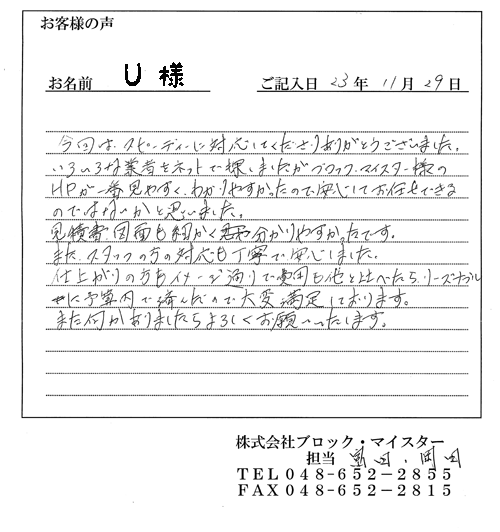 お客様の声
お名前 U 様 ご記入日 23 年 11 月 29 日
今回は、スピーディーに対応してくださりありがとうございました。
いろいろな業者をネットで探しましたがブロック、マイスター様の
HPが一番見やすく、わかりやすかったので安心してお任せできる
のではないかと思いました。
見積書、図面も細かく 分かりやすかったです。
また、スタッフの方の対応も丁寧で安心しました。
仕上がりの方もイメージ通りで費用も他と比べたらリーズナブル
に予算内で済んだので大変満足しております。
また何かありましたらよろしくお願いいたします。
株式会社ブロック・マイスター
担当 岡田
TEL048-652-2855
FAX048-652-2815